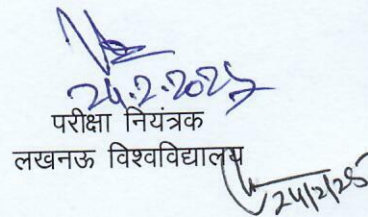 24.2.2025
परीक्षा नियंत्रक
लखनऊ विश्वविद्यालय
24/2/25